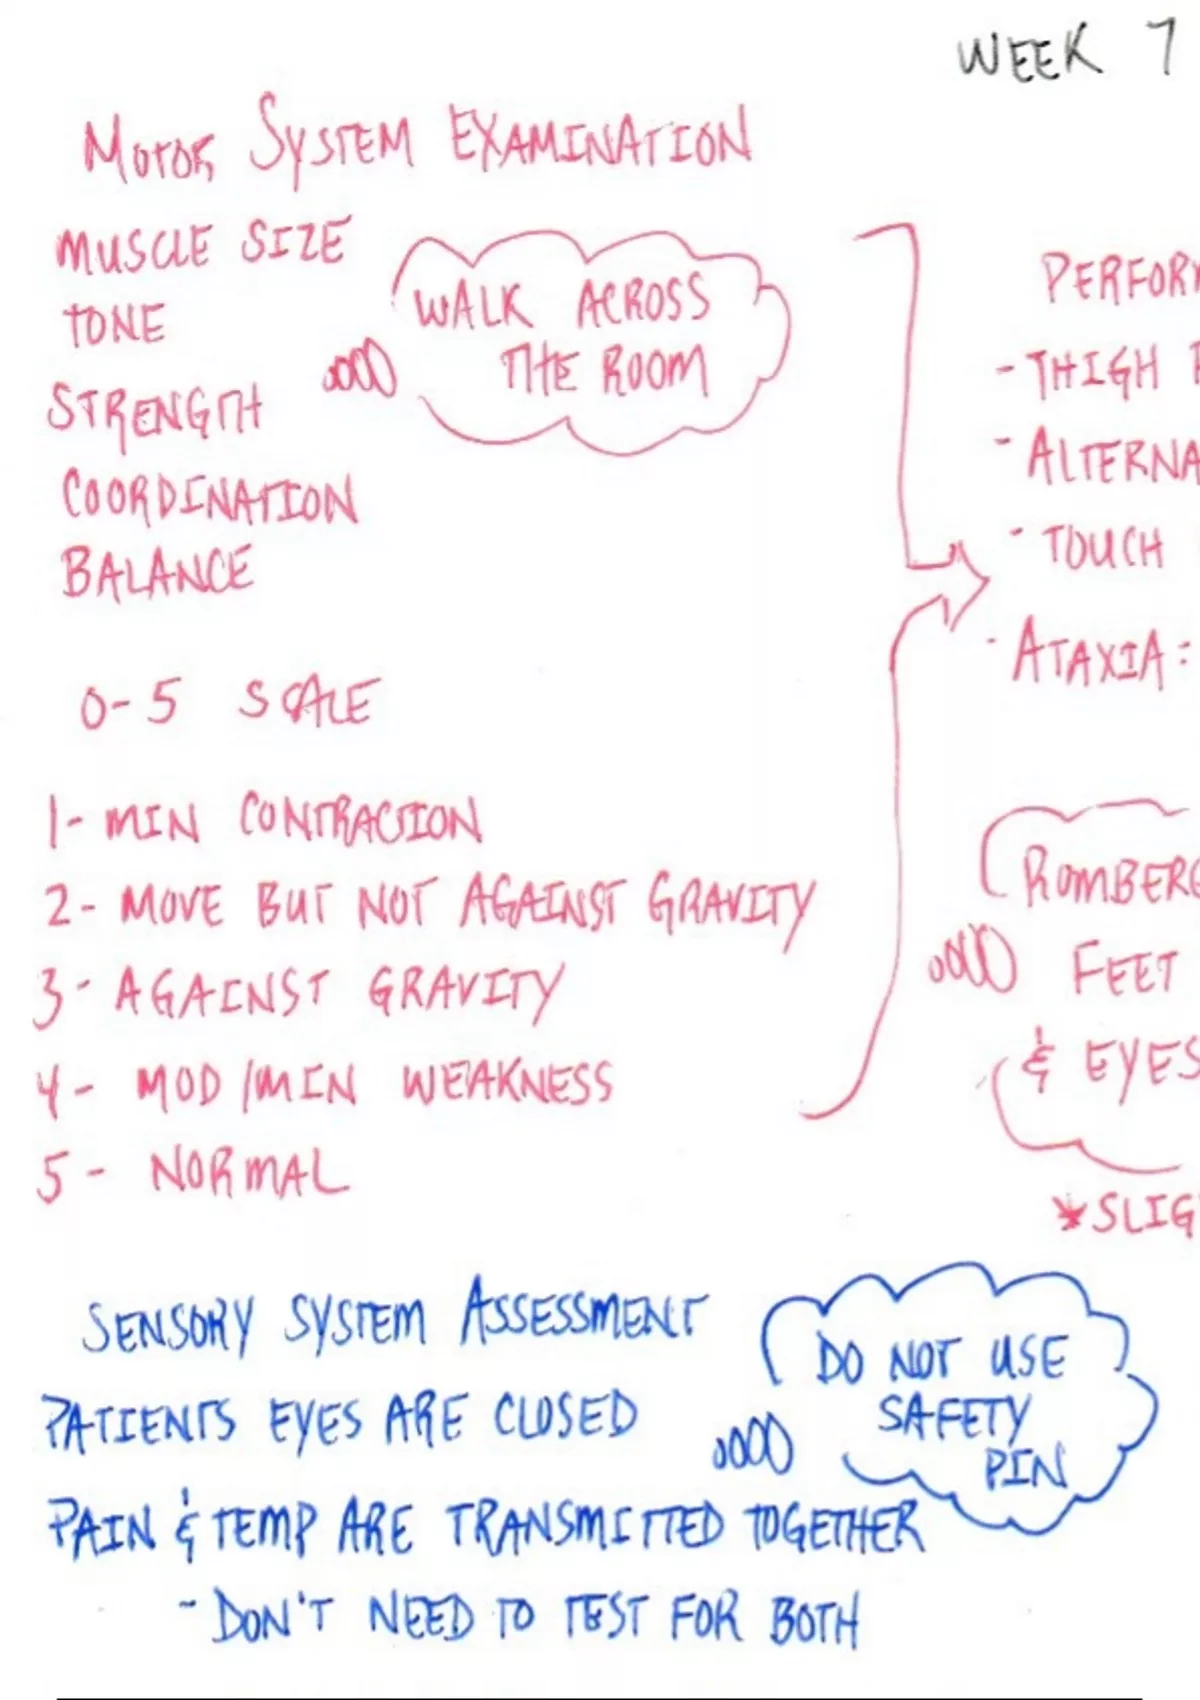 WEEK 7
MOTOR SYSTEM EXAMINATION
MUSCLE SIZE
TONE
STRENGTH
COORDINATION
BALANCE
WALK ACROSS
THE ROOM
0-5 SCALE
1- MIN CONTRACTION
2- MOVE BUT NOT AGAINST GRAVITY
3- AGAINST GRAVITY
4- MOD/MIN WEAKNESS
5- NORMAL
PERFOR
- THIGH
- ALTERNA
- TOUCH
- ATAXIA =
ROMBERG
FEET
& EYES
*SLIG
SENSORY SYSTEM ASSESSMENT
PATIENTS EYES ARE CLOSED
PAIN & TEMP ARE TRANSMITTED TOGETHER
- DON'T NEED TO TEST FOR BOTH
DO NOT USE
SAFETY
PIN